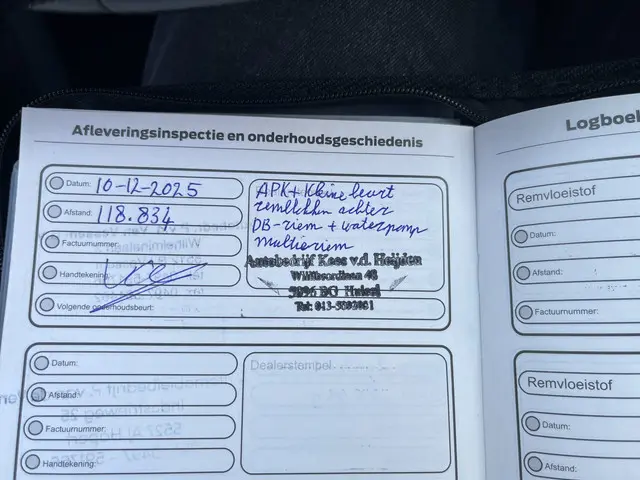 Afleveringsinspectie en onderhoudsgeschiedenis
Datum: 10-12-2025
Afstand: 118.834
Factuurnummer:
Handtekening:
Volgende onderhoudsbeurt:
APK + Kleine beurt
remblokken achter
DB-riem + waterpomp
multieriem
Autobedrijf Kees v.d. Heijden
Tel: 013-
Datum:
Afstand:
Factuurnummer:
Handtekening:
Dealerstempel
Logboek
Remvloeistof
Datum:
Afstand:
Factuurnummer:
Remvloeistof
Datum:
Afstand: